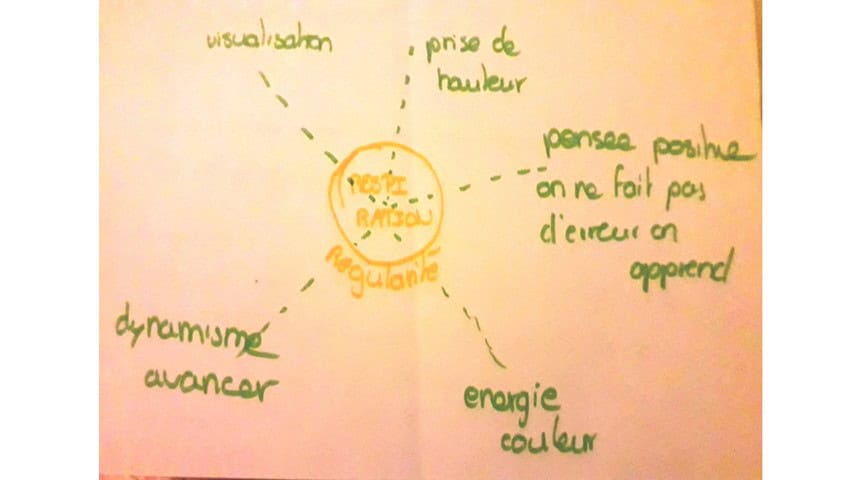 visualisation
prise de
hauteur
pensee positive
on ne fait pas
d'erreur on
apprend
RESPI
RATION
Régularité
dynamisme
avancer
energie
couleur